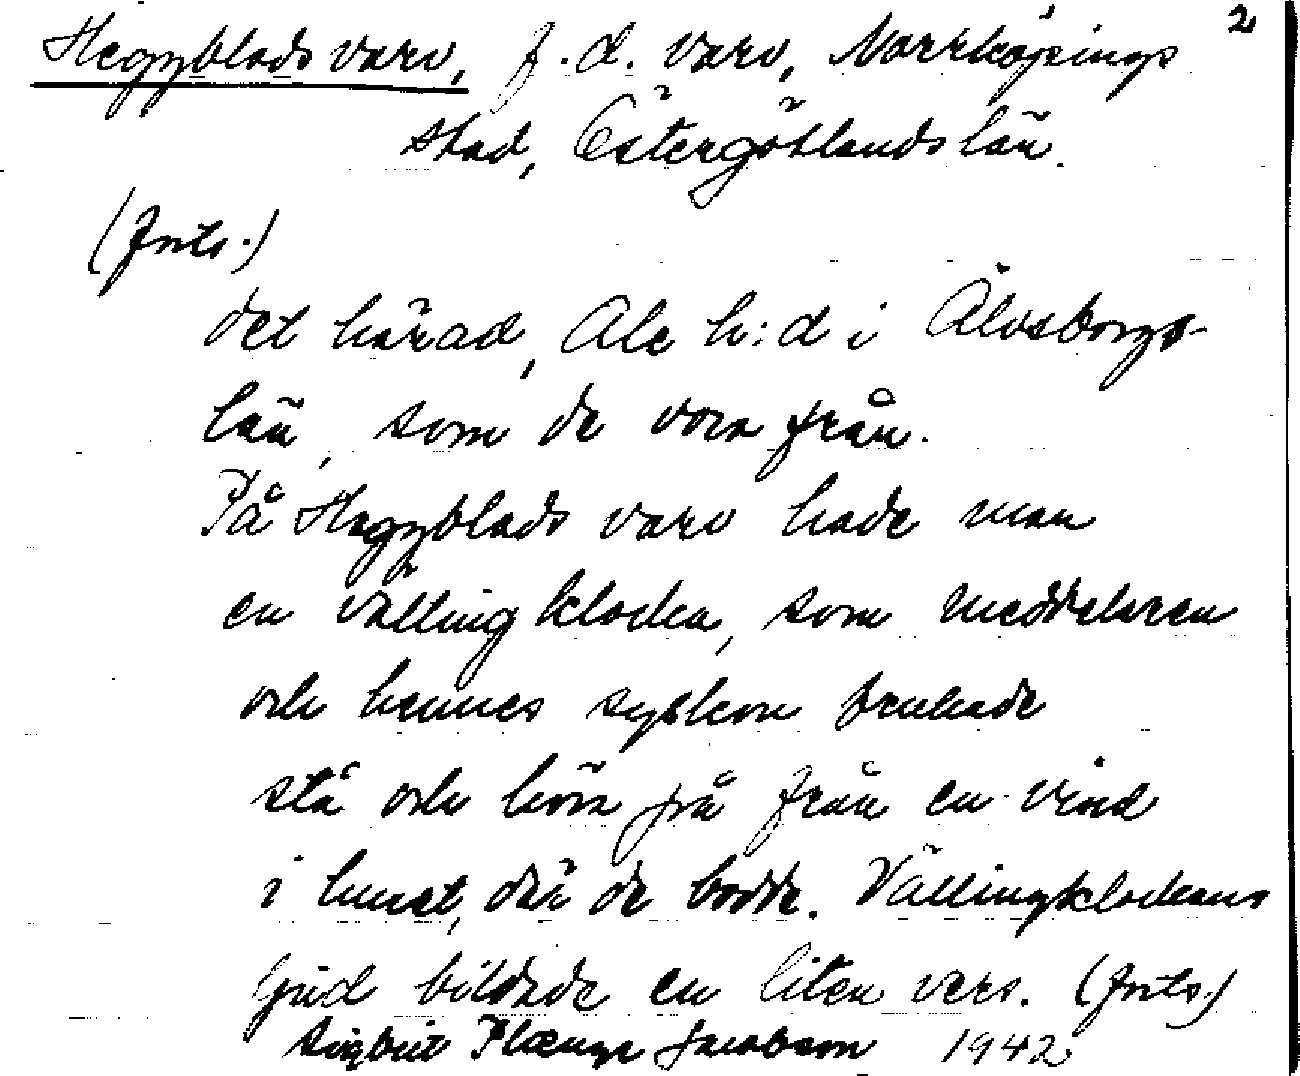 2
Heggblads varv, f.d. varv, Norrköpings
stad, Östergötlands län.
(forts.)
det härad, Ale h:d i Älvsborgs-
län, som de voro från.
På Heggblads varv hade man
en vällingklocka, som meddelaren
och hennes syskon brukade
stå och höra på från en vind
i huset, där de bodde. Vällingklockans
ljud bildade en liten vers. (forts.)
Sigbrit Plænge Jacobson 1942